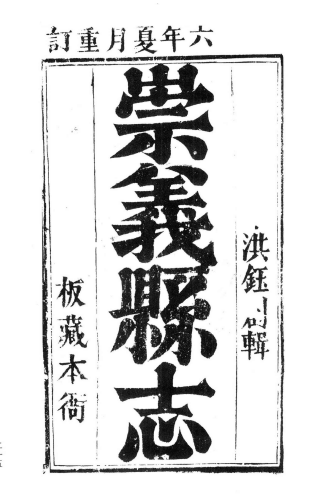 六年夏月重訂
洪鈺 輯
崇義縣志
板藏本衙